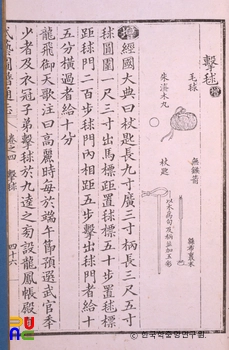 擊毬
毛毬
朱漆木丸
無鏃箭
杖匙
經國大典曰杖匙長九寸廣三寸柄長三尺五寸
毬圓圍一尺三寸出馬標距置毬標五十步置毬標
距毬門二百步毬門內相距五步擊出毬門者給十
五分橫過者給十分
龍飛御天歌注曰高麗時每於端午節預選武官年
少者及衣冠子弟擊毬於九逵之旁設龍鳳帳殿
武藝圖譜通志 卷之四 擊毬 四十六
ⓒ 한국학중앙연구원